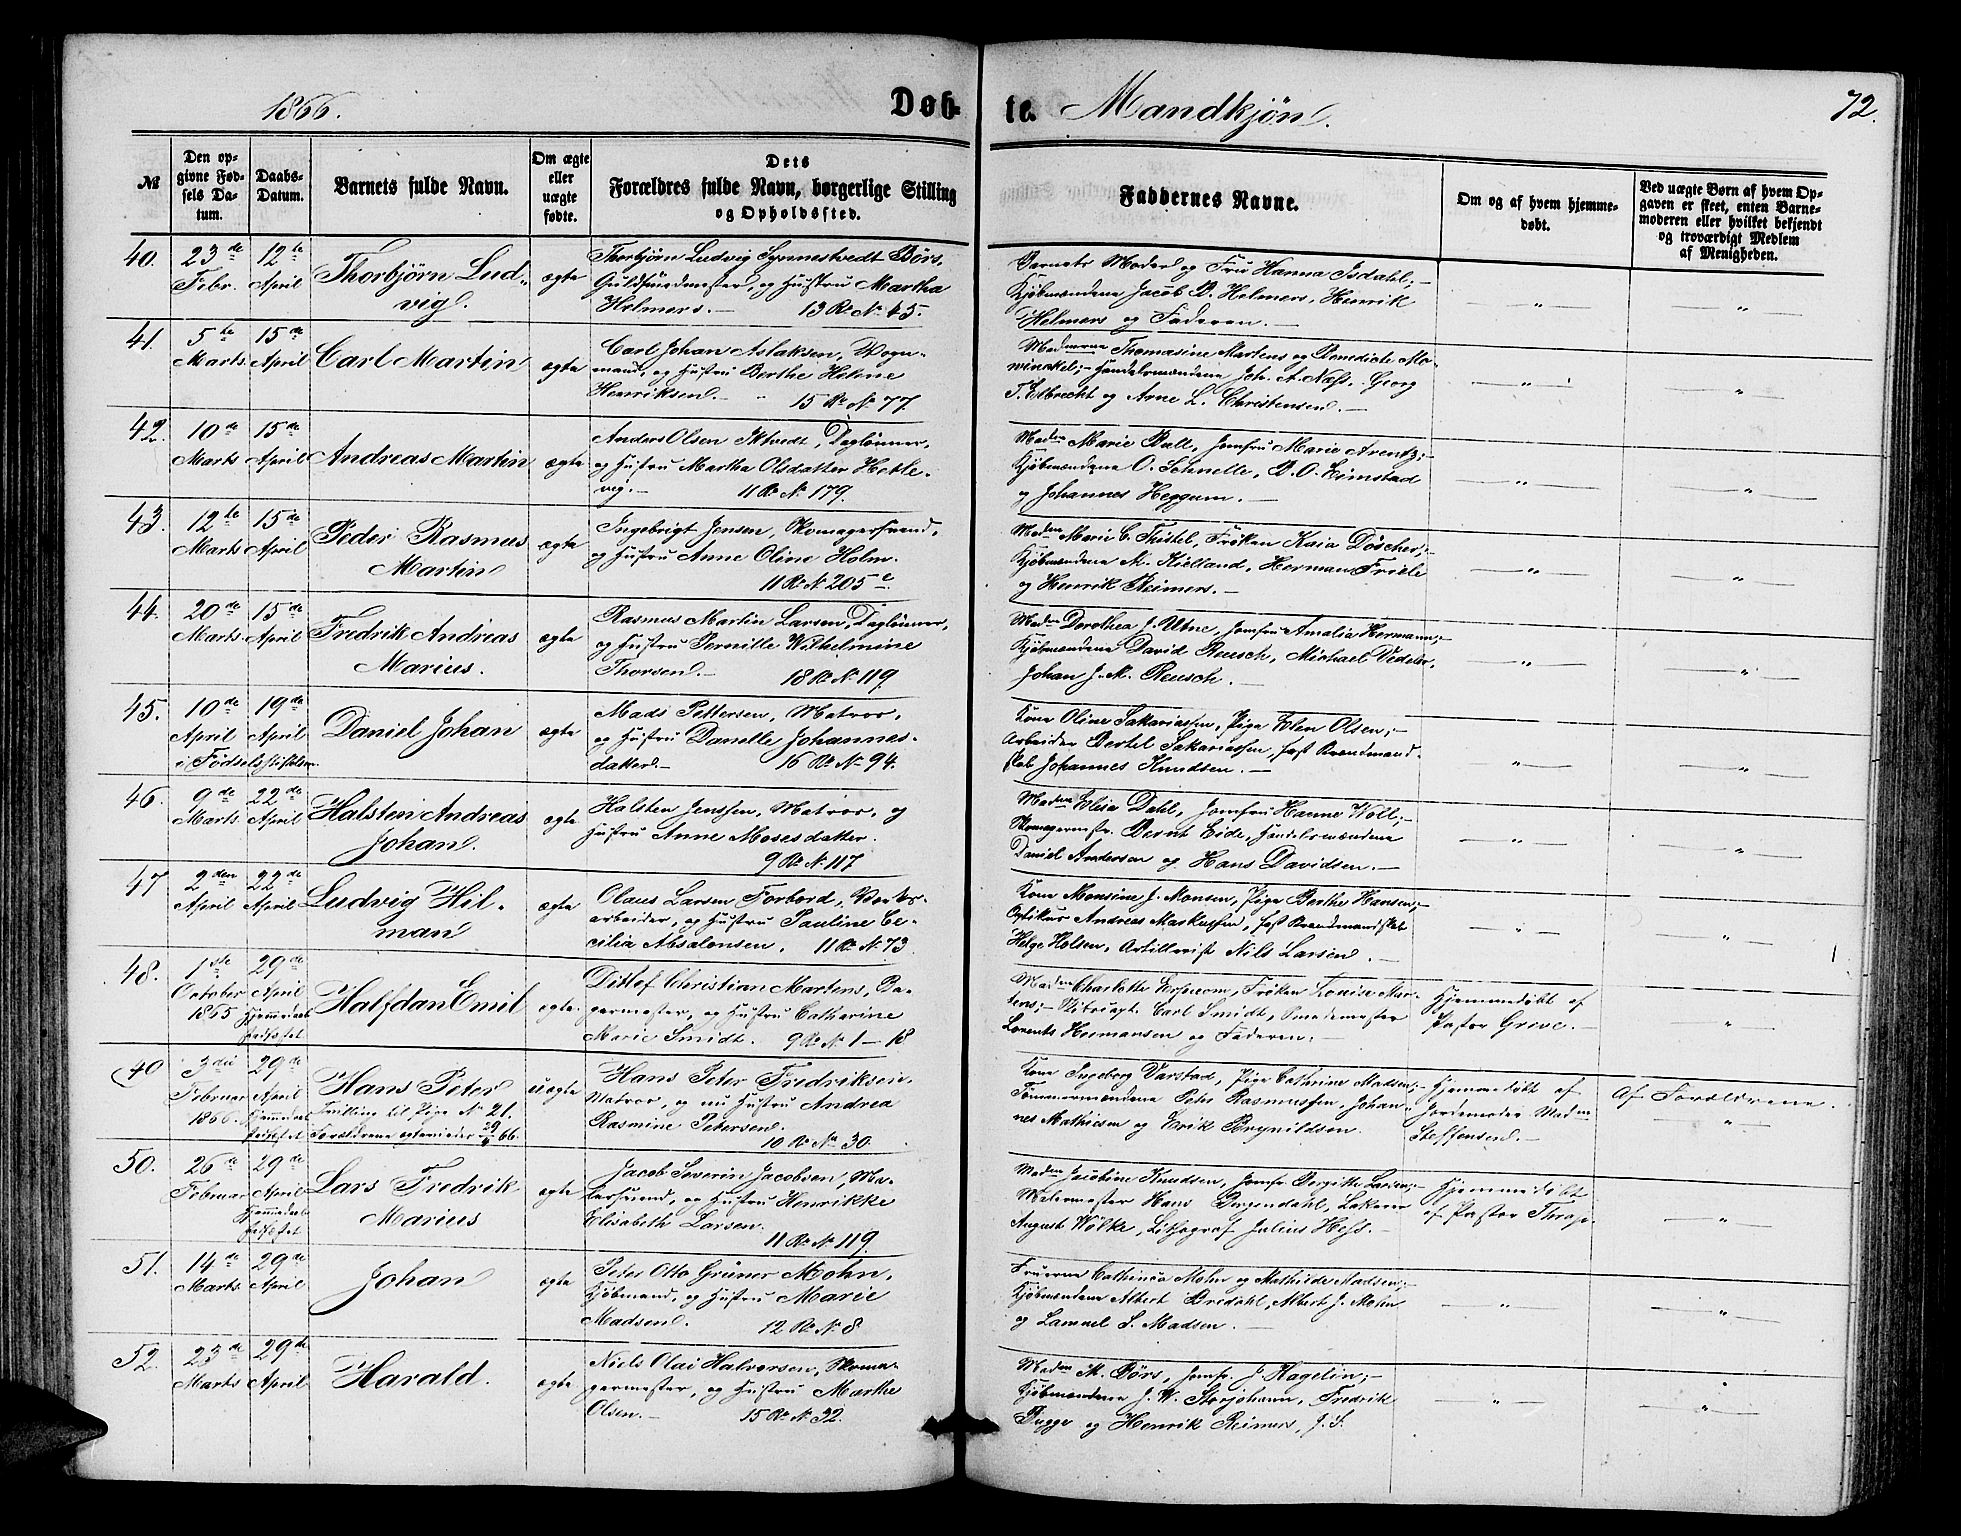 1866.
Døb-
te. Mandkjøn.
72.
№
Den op-
givne Fød-
sels Da-
tum.
Daabs-
Datum.
Barnets fulde Navn.
Om ægte
eller
uægte
fødte.
Dets
Forældres fulde Navn, borgerlige Stilling
og Opholdssted.
Faddernes Navne.
Om og af hvem hjemme-
døbt.
Ved uægte Børn af hvem Op-
gaven er skeet, enten Barne-
moderen eller hvilket bekjendt
og troværdigt Medlem
af Menigheden.
40.
23de
Febr.
12te
April
Thorbjørn Lud-
vig.
ægte
Thorbjørn Ludvig Synnestvedt Børs,
Guldsmedmester, og Hustru Martha
Helmers. — 13 R. N. 45.
Barnets Moder og Fru Hanna Isdahl; —
Kjøbmændene Jacob B. Helmers, Henrik
Helmers og Faderen. —
— " —
— " —
41.
5te
Marts
15de
April
Carl Martin
ægte
Carl Johan Aslaksen, Vogn-
mand, og Hustru Berthe Helene
Henriksen. — 15 R. N. 77.
Madmerne Thomasine Martens og Benedicte Mo-
winckel; — Handelsmændene Joh. A. Næss, Georg
T. Esbrecht og Arne L. Christensen. —
— " —
— " —
42.
10de
Marts
15de
April
Andreas Martin
ægte
Anders Olsen Iktvedt, Daglønner,
og Hustru Martha Olsdatter Hetle-
vig. — 11 R. N. 179.
Madm Marie Bull, Jomfru Marie Arentz; —
Kjøbmændene O. Schnelle, B. O. Kimstad
og Johannes Heggum. —
— " —
— " —
43.
12te
Marts
15de
April
Peder Rasmus
Martin
ægte
Ingebrigt Jensen, Skomagersvend,
og Hustru Anne Oline Holm.
11 R. N. 205 c.
Madm Marie C. Thistel, Frøken Kaia Döscher; —
Kjøbmændene M. Kielland, Herman Friele
og Henrik Reimers. —
— " —
— " —
44.
20de
Marts
15de
April
Fredrik Andreas
Marius.
ægte
Rasmus Martin Larsen, Daglønner,
og Hustru Pernille Wilhelmine
Thorsen. — 18 R. N. 119.
Madm Dorothea J. Utne, Jomfru Amalia Hermann; —
Kjøbmændene David Reusch, Michael Vedeler,
Johan J. M. Reusch. —
— " —
— " —
45.
10de
April
19de
April
i Fødselsstiftelsen
Daniel Johan
ægte
Mads Pettersen, Matros,
og Hustru Danelle Johannes-
datter. — 16 R. N. 94.
Kone Oline Sakariassen, Pige Elen Olsen; —
Arbeider Bertel Sakariassen, fast Brandmand-
skab Johannes Knudsen. —
— " —
— " —
46.
9de
Marts
22de
April
Halsten Andreas
Johan.
ægte
Halsten Jenssen, Matros, og
Hustru Anne Mosesdatter.
9 R. N. 117
Madm Elisa Dahl, Jomfru Hanne Woll; —
Skomagermstr. Bernt Eide, Handelsmændene
Daniel Andersen og Hans Davidsen. —
— " —
— " —
47
2den
April
22de
April
Ludvig Hil-
man
ægte
Olaus Larsen Forbord, Værks-
arbeider, og Hustru Pauline Ce-
cilia Absalonsen. 11 R. N. 73.
Kone Monsine J. Monsen, Pige Berthe Hansen; —
Optikus Andreas Markussen, fast Brandmandskab
Helge Holsen, Artillerist Nils Larsen. —
— " —
— " —
48.
1ste
October
1865
29de
April
Hjemmedaab
stadfæstet
Halfdan Emil
ægte.
Ditlef Christian Martens, Ba-
germester, og Hustru Catharine
Marie Smidt. 9 R. N. 1–18
Madm Charlotte, Frøken Louise Mar-
tens; — Skibscapt. Carl Smidt, Smedemester
Lorents Hermansen og Faderen. —
Hjemmedøbt af
Pastor Greve. —
"
40
3die
Februar
1866.
29de
April
Hjemmedaab
stadfæstet
Hans Peter
Tvilling til Pige No 21.
Forældrene ægteviede 29/4 66.
uægte
Hans Peter Fredriksen,
Matros, og nu Hustru Andrea
Rasmine Petersen.
10 R. No 30.
Kone Ingeborg Varstad, Pige Cathrine Madsen; —
Tømmermændene Peter Rasmussen, Johan-
nes Mathiesen og Erik Brynildsen.
Hjemmedøbt af
Jordemoder Madm
Steffensen. —
Af Forældrene.
— " —
50.
26de
Februar
29de
April
Hjemmedaab
stadfæstet
Lars Fredrik
Marius
ægte
Jacob Severin Jacobsen, Ma-
lersvend, og Hustru Henrikke
Elisabeth Larsen.
11 R. N. 119.
Madm Jacobine Knudsen, Jomfr Bergitte Larsen; —
Malermester Hans Birgendahl, Lakerer
August Wölke, Lithograf Julius Hess. —
Hjemmedøbt
af Pastor Thrap.
"
51.
14de
Marts
29de
April
Johan
ægte
Peter Otto Grüner Mohn,
Kjøbmand, og Hustru Marie
Madsen. 12 R. N. 8
Fruerne Cathinca Mohn og Mathilde Madsen; —
Kjøbmændene Albert Bredahl, Albert J. Mohn
og Samuel S. Madsen. —
— " —
— " —
52.
23de
Marts
29de
April
Harald.
ægte
Niels Olai Halvorsen, Skoma-
germester, og Hustru Marthe
Olsen. — 15 R. N. 32.
Madm M. Børs, Jomfr. J. Hagelin; —
Kjøbmændene J. W. Storjohann, Fredrik
Bugge og Henrik Reimers, J. S.
— " —
— " —